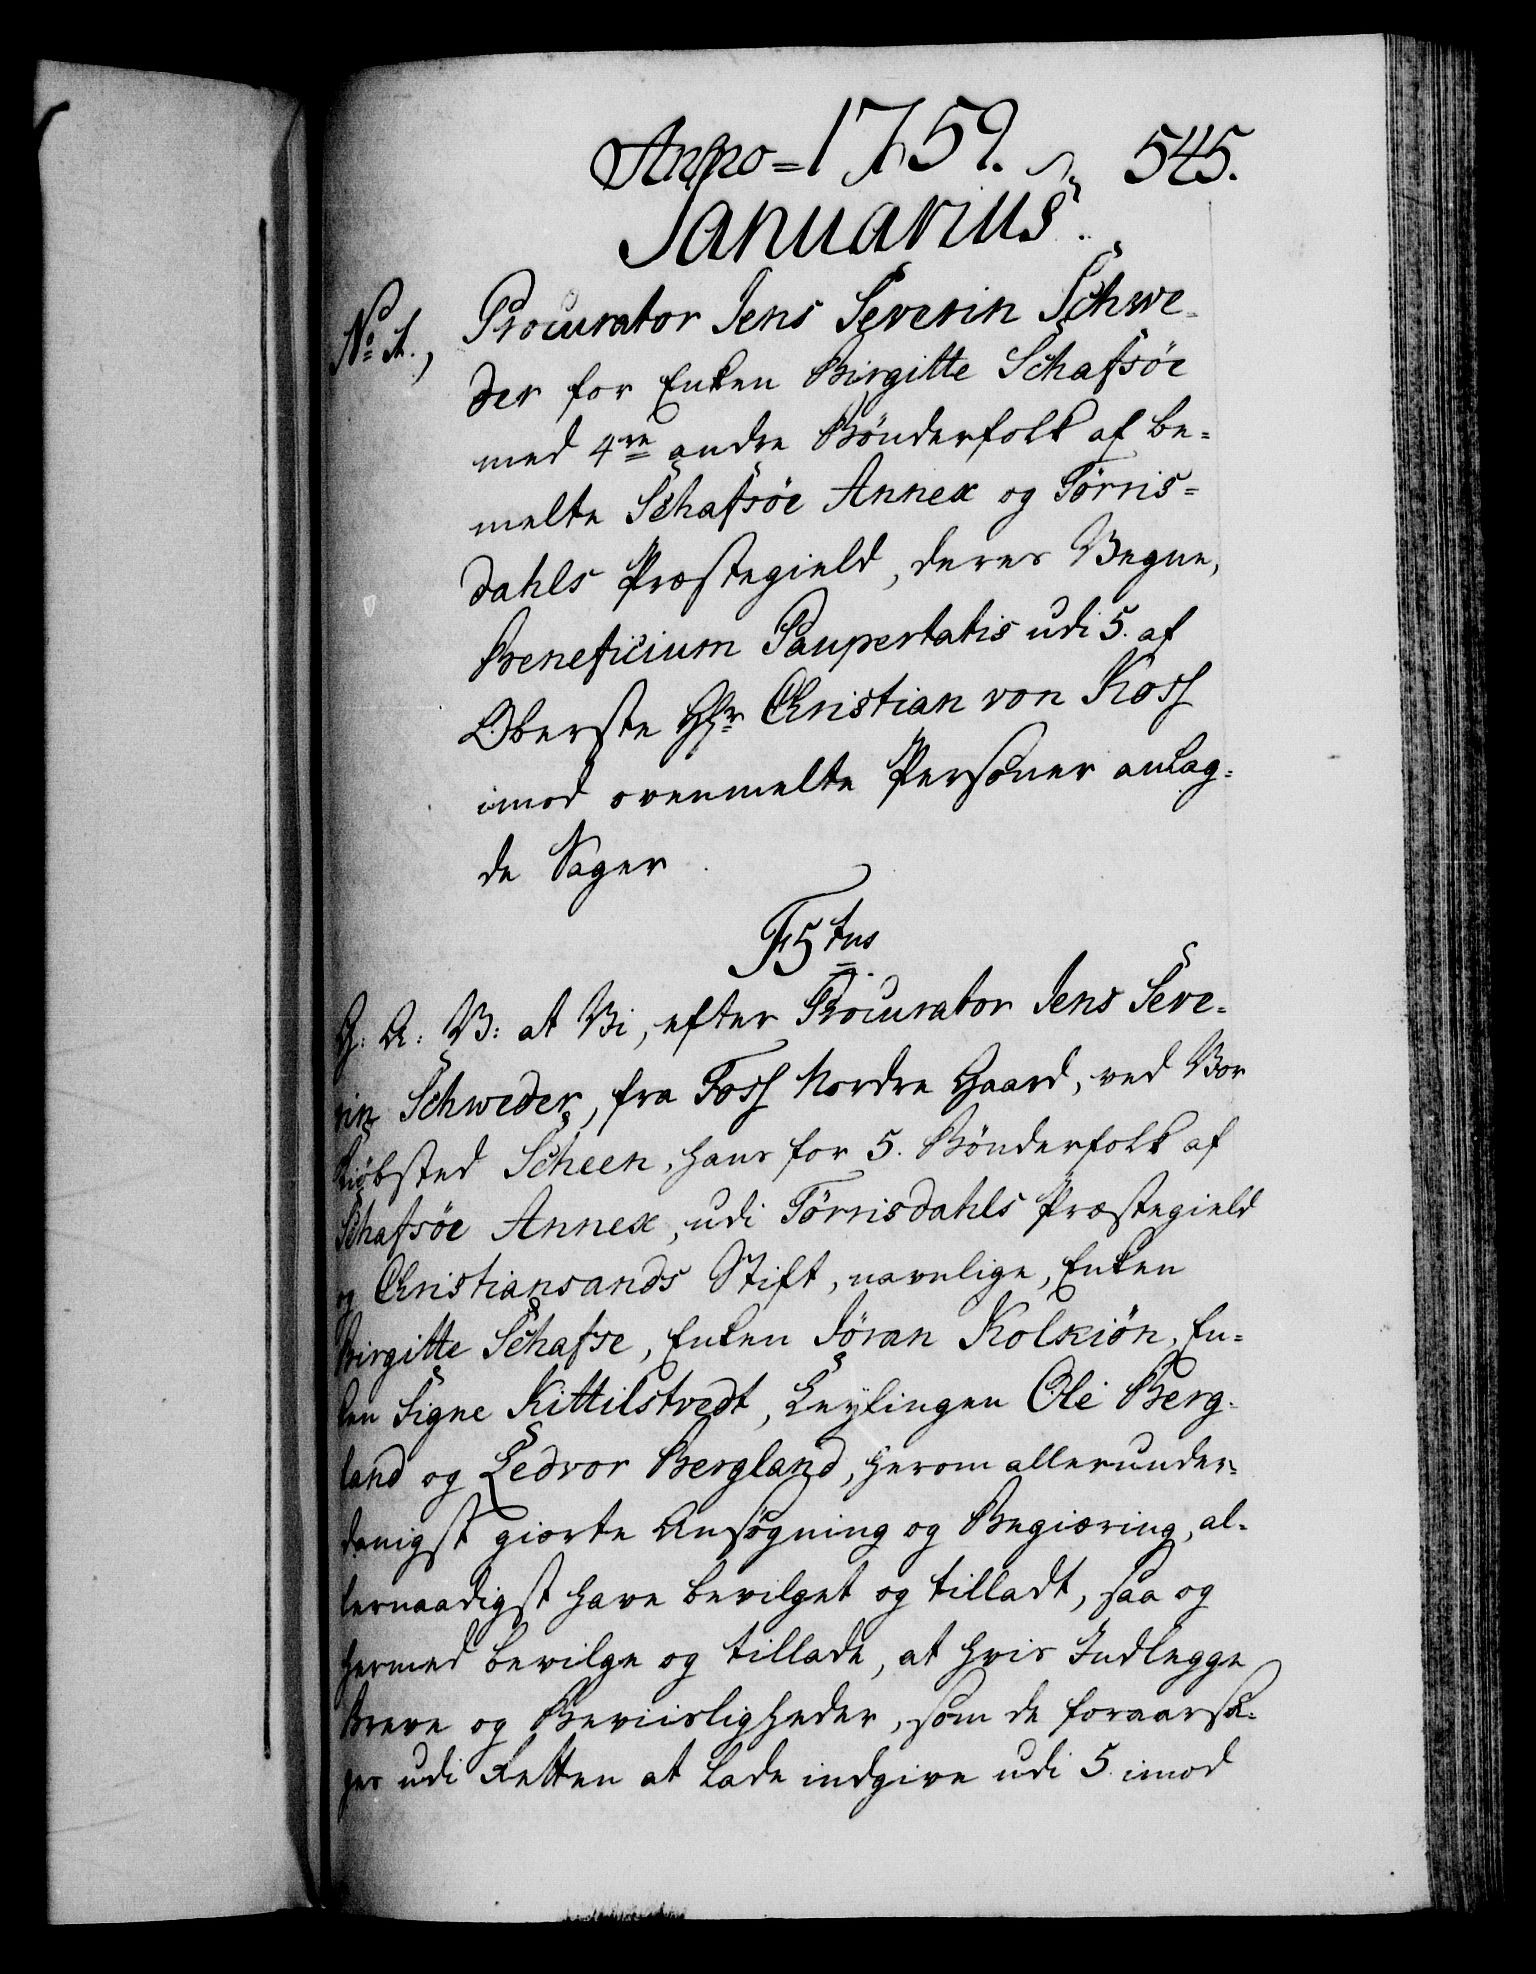 Anno = 1759. 545.
Januarius.
No 1., Procurator Jens Severin Schwe-
der for Enken Birgitte Schafsöe
med 4re andre Bönderfolk af be-
melte Schafsöe Annex og Törris-
dahls Præstegield, deres Vegne,
Beneficium Paupertatis udi 5. af
Oberste Hr Christian von Koss
imod ovenmelte Personer anlag-
de Sager.
F5tus
G. A. V: at Vi, efter Procurator Jens Seve-
rin Schweder, fra Foss Nordre Gaard, ved Vor
Kiöbsted Scheen, hans for 5. Bönderfolk af
Schafsöe Annex, udi Törrisdahls Præstegield
og Christiansands Stift, navnlige, Enken
Birgitte Schafse, Enken Jöran Kolkiön, En-
ken Signe Kittilstvedt, Leylingen Ole Berg-
land og Ledvor Bergland, herom allerunder-
danigst giorte Ansögning og Begiæring, al-
lernaadigst have bevilget og tilladt, saa og
hermed bevilge og tillade, at hvis Indlegge
Breve og Beviisligheder, som de foraarsa-
ges udi Retten at lade indgive udi 5. imod